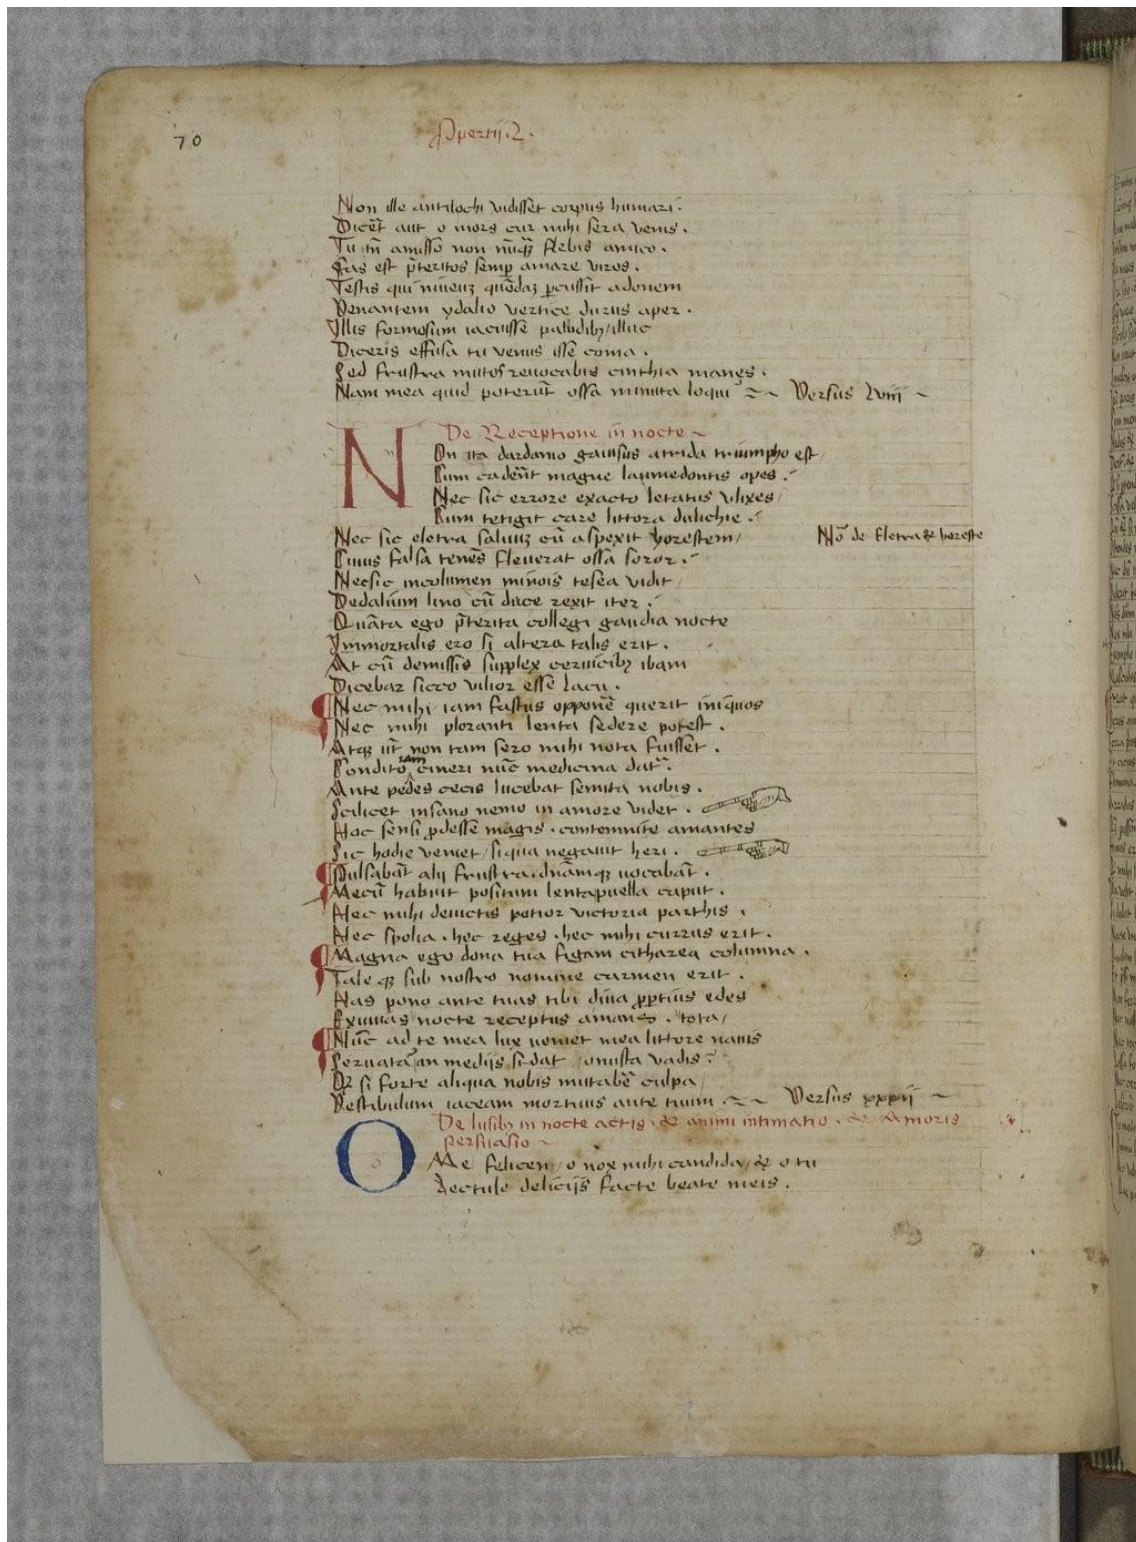 70
Propertij .2.
Non ille antilochi vidisset corpus humari.
Dicer̃t aut o mors cur mihi sera venis.
Tu tñ amisso non nũq̃ flebis amico.
Fas est p̃teritos semp amare viros.
Testis qui niueuʒ quõdaʒ pcussit adonem
Venantem ydalio vertice durus aper.
Illis formosum iacuisse paludibꝫ / illuc
Diceris effusa tu venus isse coma.
Sed frustra mutos reuocabis cinthia manes.
Nam mea quid poterũt ossa minuta loqui ~ Versus lviij ~
De Receptione in nocte ~
NOn ita dardanio gauisus atrida triumpho est /
Cum cader̃nt magne laumedontis opes.
Nec sic errore exacto letatus vlixes /
Cum tetigit care littora dulichie.
Nec sic eletra saluuʒ cũ aspexit horestem /
Nõ de Eletra & horeste
Cuius falsa tenẽs fleuerat ossa soror.
Nec sic incolumen minois tesea vidit /
Dedalium lino cũ duce rexit iter.
Quãta ego p̃terita collegi gaudia nocte
Immortalis ero si altera talis erit.
At cũ demissis supplex ceruicibꝫ ibam
Dicebar sicco vilior esse lacu.
¶ Nec mihi iam fastus opponẽ querit iniquos
Nec mihi ploranti lenta sedere potest.
Atqꝫ ut̃ non tam sero mihi nota fuisset.
iam
Condito cineri nũc medicina dat̃.
Ante pedes cecis lucebat semita nobis.
Scilicet insano nemo in amore videt.
Hoc sensi ꝓdesse magis . contemnite amantes
Sic hodie veniet / siqua negauit heri.
¶ Pulsabãt alij frustra . dñamqꝫ uocabãt.
Mecũ habuit positum lenta puella caput.
Hec mihi deuictis potior victoria parthis.
Hec spolia . hec reges . hec mihi currus erit.
¶ Magna ego dona tua figam citharea columna.
Taleqꝫ sub nostro nomine carmen erit.
Has pono ante tuas tibi diua ꝓptius edes
Exuuias nocte receptus amans . tota /
¶ Nũc ad te mea lux ueniet mea littore nauis
Seruata an medijs sidat onusta vadis ?
Q̃ si forte aliqua nobis mutabẽ culpa /
Vestibulum iaceam mortuus ante tuum ~ Versus xxxij ~
De lusibꝫ in nocte actis . & animi intimatio . & Amoris
persuasio ~
O Me felicem / o nox mihi candida / & o tu
Lectule delicijs facte beate meis.